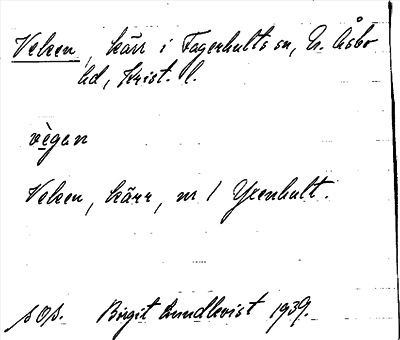 Veken, kärr i Fagerhults sn, N. Åsbo
hd, Krist. l.
vègan
Veken, kärr, nr 1 Yxenhult.
s. O. s. Birgit Lundkvist 1939.